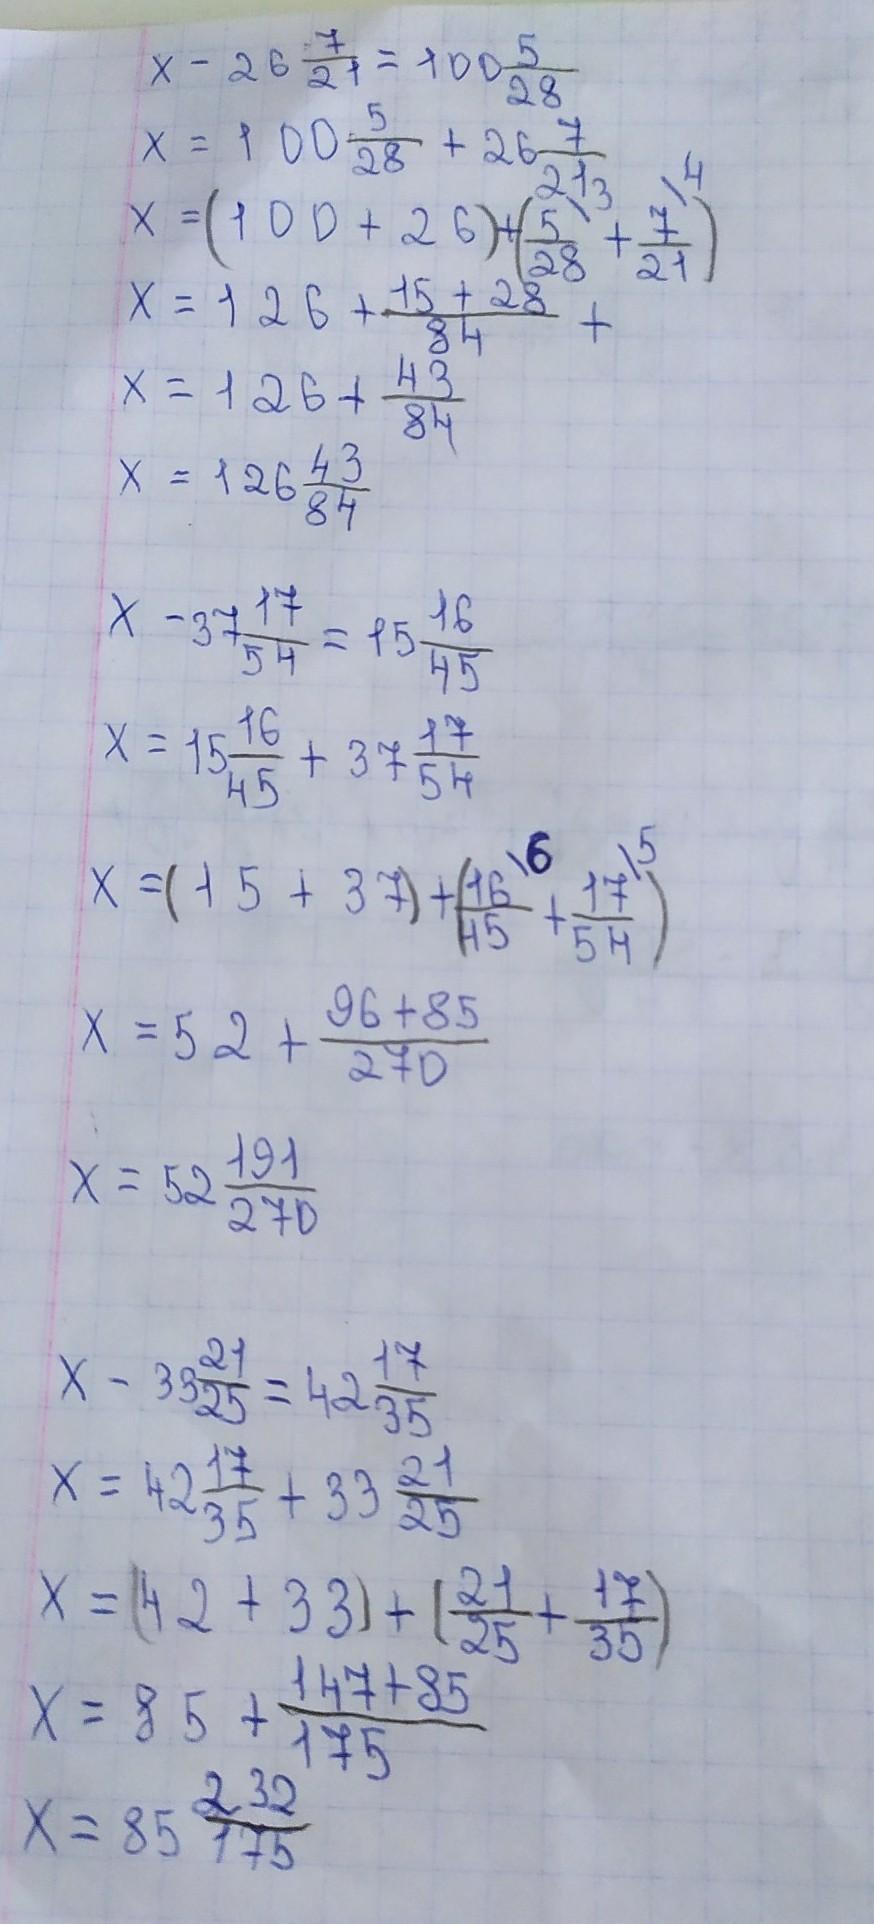 x - 26 7/21 = 100 5/28
x = 100 5/28 + 26 7/21
x = (100 + 26) + (5/28 \3 + 7/21 \4)
x = 126 + (15 + 28)/84 +
x = 126 + 43/84
x = 126 43/84
x - 37 17/54 = 15 16/45
x = 15 16/45 + 37 17/54
x = (15 + 37) + (16/45 \6 + 17/54 \5)
x = 52 + (96 + 85)/270
x = 52 191/270
x - 33 21/25 = 42 17/35
x = 42 17/35 + 33 21/25
x = (42 + 33) + (21/25 + 17/35)
x = 85 + (147 + 85)/175
x = 85 232/175